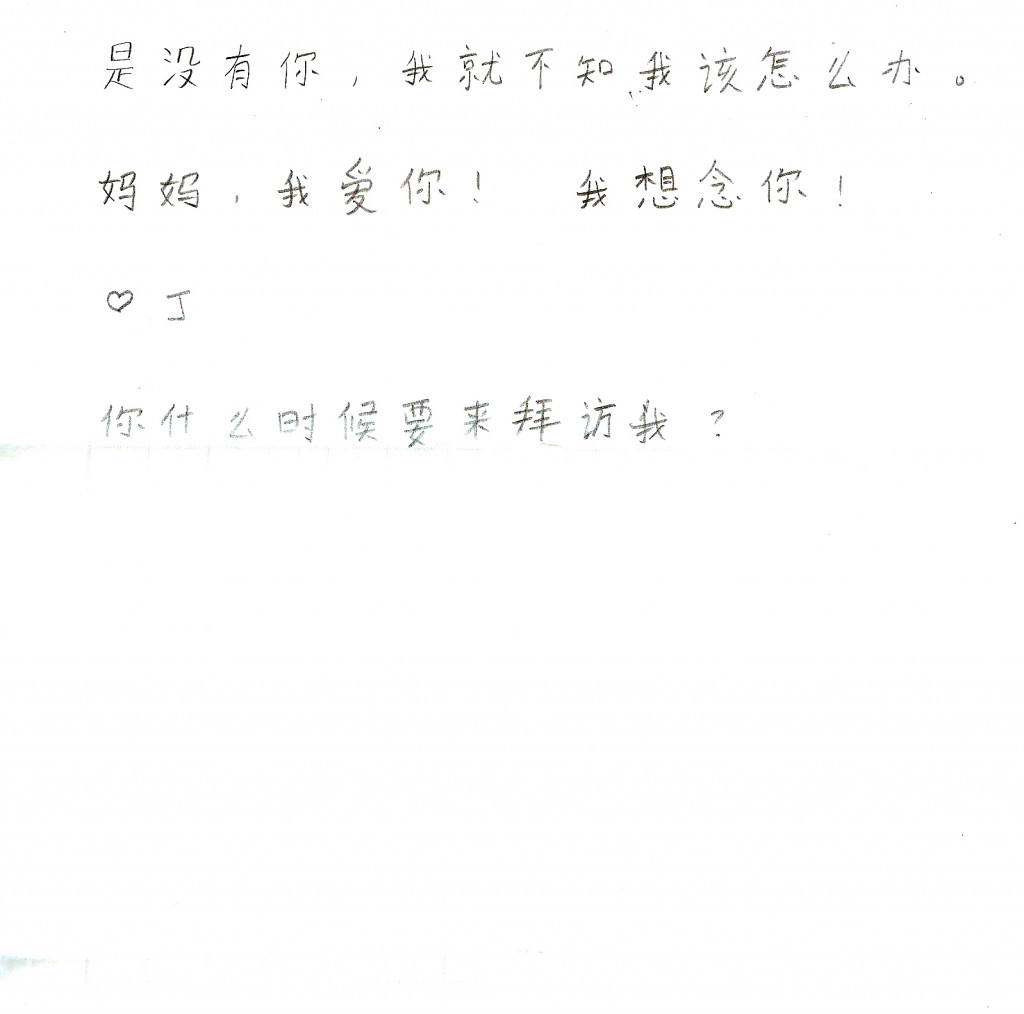 是没有你，我就不知我该怎么办。
妈妈，我爱你！ 我想念你！
♡ J
你什么时候要来拜访我？